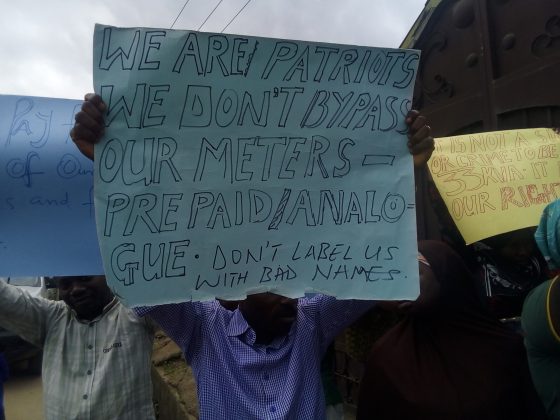 WE ARE PATRIOTS
WE DON'T BYPASS
OUR METERS -
PREPAID/ANALO-
GUE. DON'T LABEL US
WITH BAD NAMES.
Pay f
of Ou
s and f
IS NOT A
OR CRIME TO BE
33KVA. IT
OUR RIGHT